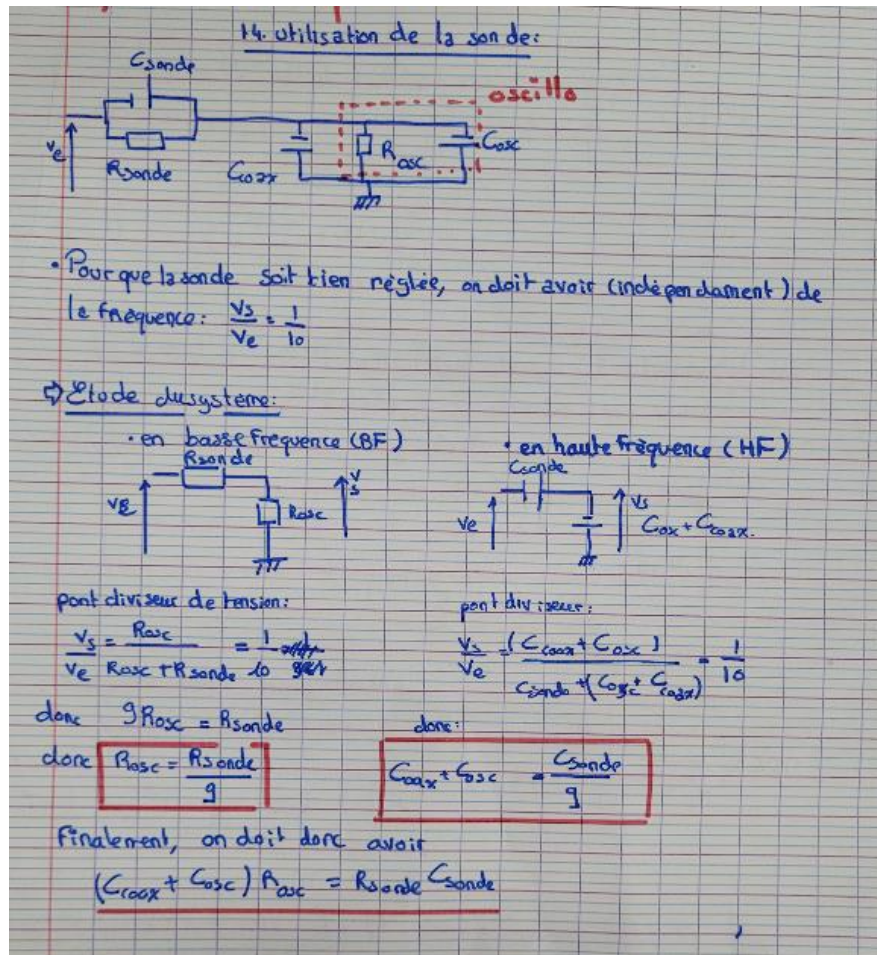 14. utilisation de la sonde:
Csonde
oscillo
ve
Rsonde
Coax
Rosc
Cosc
• Pour que la sonde soit bien réglée, on doit avoir (indépendament) de
la fréquence: Vs/Ve = 1/10
⇨ Etude du système:
• en basse fréquence (BF)
Rsonde
VE
Rosc
Vs
• en haute fréquence (HF)
Csonde
Ve
Vs
Cox + Ccoax.
pont diviseur de tension:
Vs/Ve = Rosc/(Rosc + Rsonde) = 1/10
donc 9Rosc = Rsonde
donc Rosc = Rsonde/9
pont diviseur:
Vs/Ve = (Ccoax + Cosc)/(Csonde + (Cosc + Ccoax)) = 1/10
donc:
Coax + Cosc = Csonde/9
Finalement, on doit donc avoir
(Ccoax + Cosc) Rosc = Rsonde Csonde